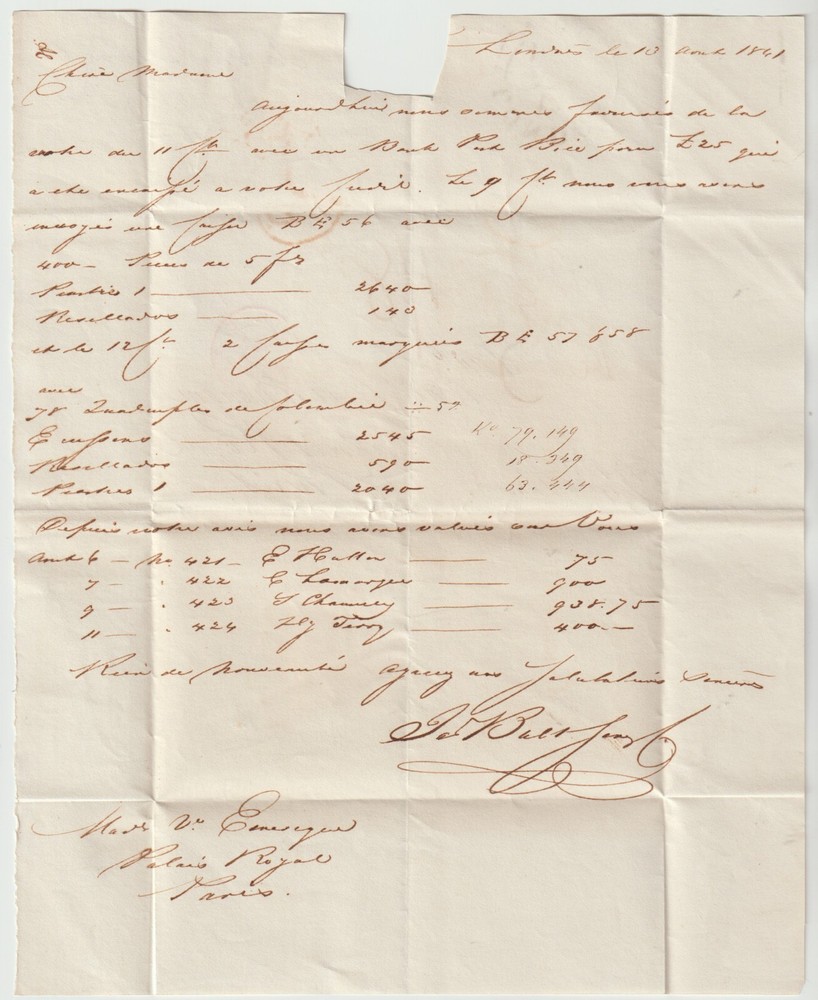 Londres le 13 Aout 1841
Chère Madame
Aujourd'hui nous sommes favorisés de la
votre du 11 Ct avec un Bank Post Bill pour £25 qui
a été encaissé a votre Credit. Le 9 Ct nous vous avons
envoyés une Caisse B E 56 avec
400 – Pieces de 5 fr
Piastres 1 2640
Resellados 140
et le 12 Ct 2 Caisses marquées B E 57 & 58
avec
78 Quadruples de Colombie
2545 79.149
Resellados 590 18.349
Piastres 1 2040 63.444
Depuis notre avis nous avons valués sur Vous
Aout 6 – No. 421 – E 75
7 – . 422 C 900
9 – . 423 938.75
11 – . 424 Terry 400 –
Rien de Nouveauté Agreez nos Salutations Sinceres
Made Ve
Palais Royal
Paris.